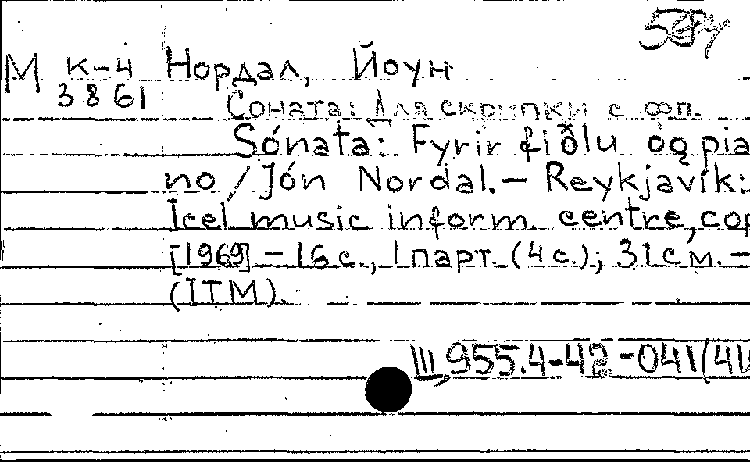 М к-4 Нордал, Йоун
3861
Соната: Для скрипки с фп.
Sónata: Fyrir fiðlu og pia
no / Jón Nordal. — Reykjavík:
Icel music inform. centre, cop
[1969] – 16 с., 1 парт. (4 с.); 31 см. –
(ITM).
Ш 955.4-42-041(4И